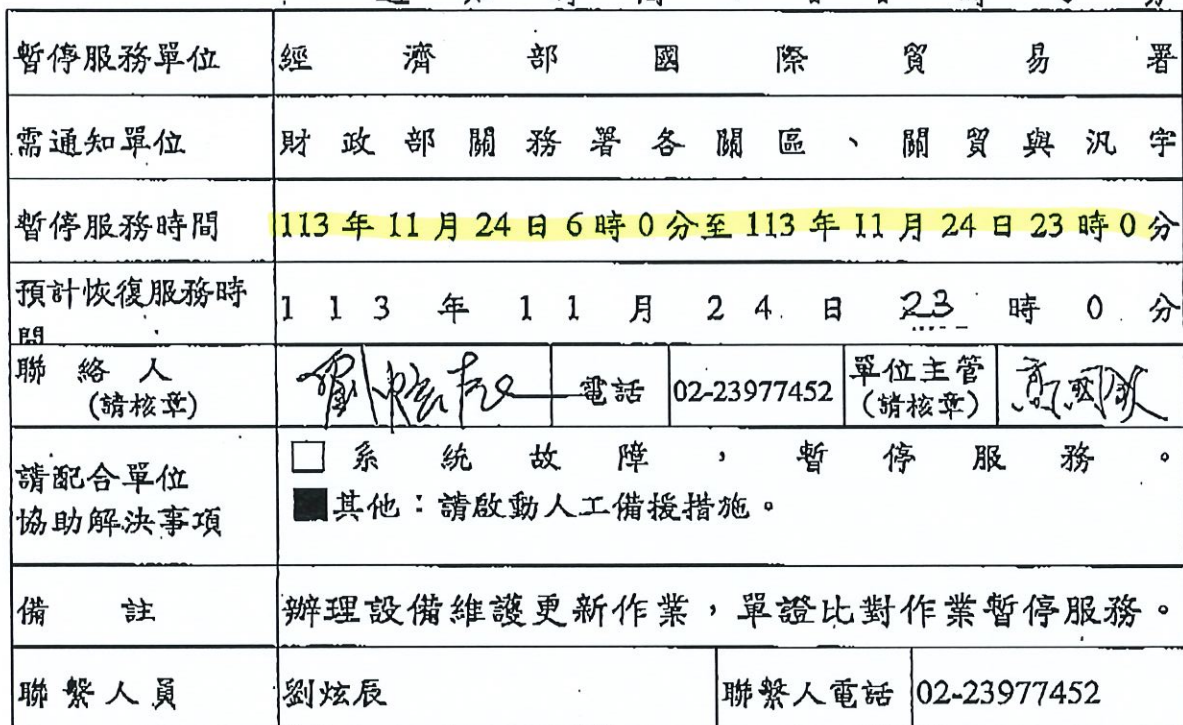 暫停服務單位 經濟部國際貿易署
需通知單位 財政部關務署各關區、關貿與汎宇
暫停服務時間 113年11月24日6時0分至113年11月24日23時0分
預計恢復服務時間 113年11月24日23時0分
聯絡人 電話 02-23977452 單位主管
(請核章) (請核章)
請配合單位
協助解決事項
□系統故障,暫停服務。
■其他:請啟動人工備援措施。
備註 辦理設備維護更新作業,單證比對作業暫停服務。
聯繫人員 劉炫辰 聯繫人電話 02-23977452